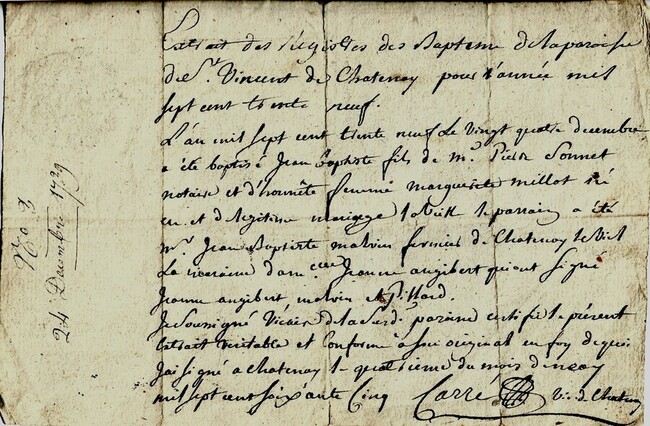 Extrait des Registres des Bapteme de la paroisse
de St. Vincent de Chatenoy pour l'année mil
sept cent trente neuf.
L'an mil sept cent trente neuf le vingt quatre decembre
a été baptisé Jean baptiste fils de mr. Pierre Sonnet
notaire et d'honnête femme marguerite millot
en et de legitime mariage le parrain a été
mr. Jean Baptiste malvin fermier de Chatenoy le Viel
La mareine dam Jeanne angibert qui ont signé
jeanne angibert malvin et pillard.
Je Soussigné Vicaire de la paroisse certifie le présent
extrait veritable et conforme à son original en foy de quoi
j'ai signé a chatenoy le quatrieme du mois de may
mil sept cent soixante Cinq Carré Vic. de Chatenoy
No 2
24 Decembre 1739